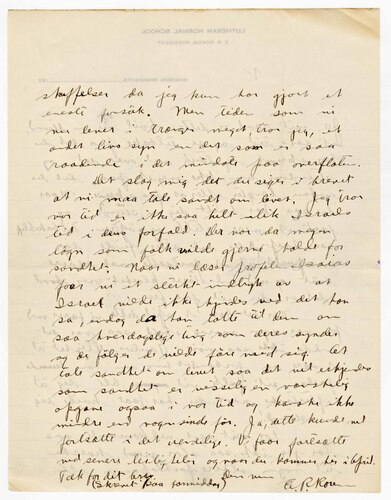 skuffelser da jeg kun har gjort et
eneste forsøk. Men tiden som vi
nu lever i trænger meget, tror jeg, et
andet livs syn en det som er saa
raadende i det mindste paa overflaten.
Det slog mig, det du siger i brevet
at vi maa tale sandt om livet. Jeg tror
vor tid er ikke saa helt ulik Israels
tid i dens forfald. Der var da megen
løgn som folk vilde gjerne holde for
sandhet. Naar vi læser profeten Isaias
faar vi et sterkt indtryk av at
Israel vilde ikke kjendes ved det han
sa, endog da han talte til dem om
saa hverdagslige ting som deres synder
og de følger de vilde føre med sig. At
tale sandhet om livet saa det vil erkjendes
som sandhet er visselig en vanskelig
opgave ogsaa i vor tid og kanske ikke
mindre en nogensinde før. Ja, dette kunde vi
fortsætte i det uendelige. Vi faar fortsætte
ved senere leilighet og naar du kommer her i april.
Tak for dit brev. Din ven
(skrevet paa formiddag)